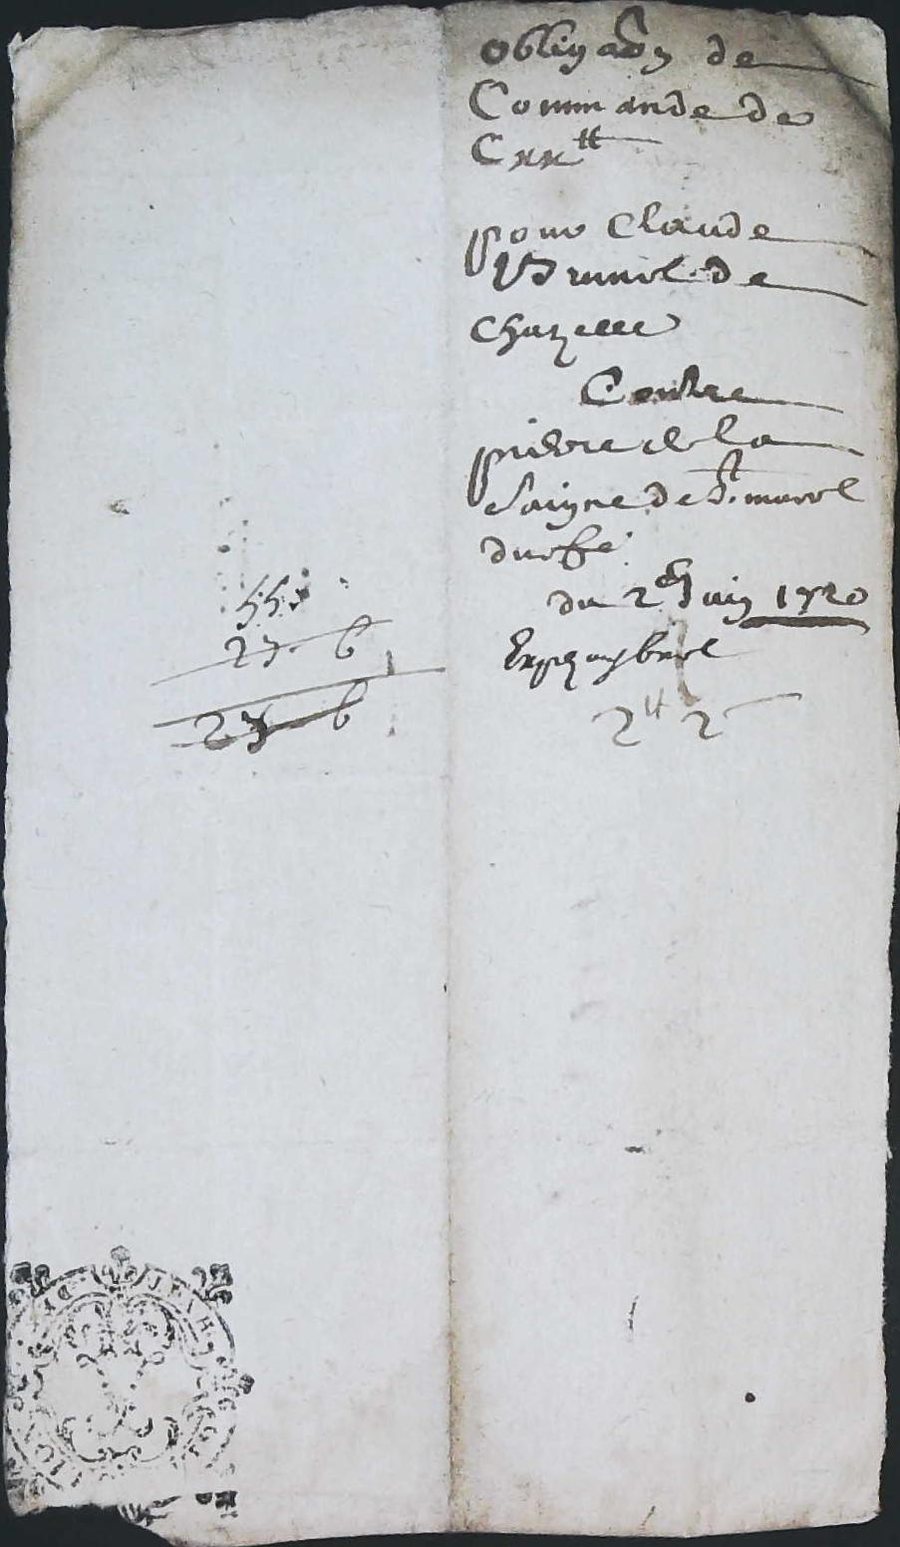 obligaōn de
Commande de
Cxx tt
pour Claude
Brunel de
Chazelle
Contre
pierre de la
Saigne de St. marcel
durfe
du 2e Juin 1720
2 tt 2
55
27 6
27 6